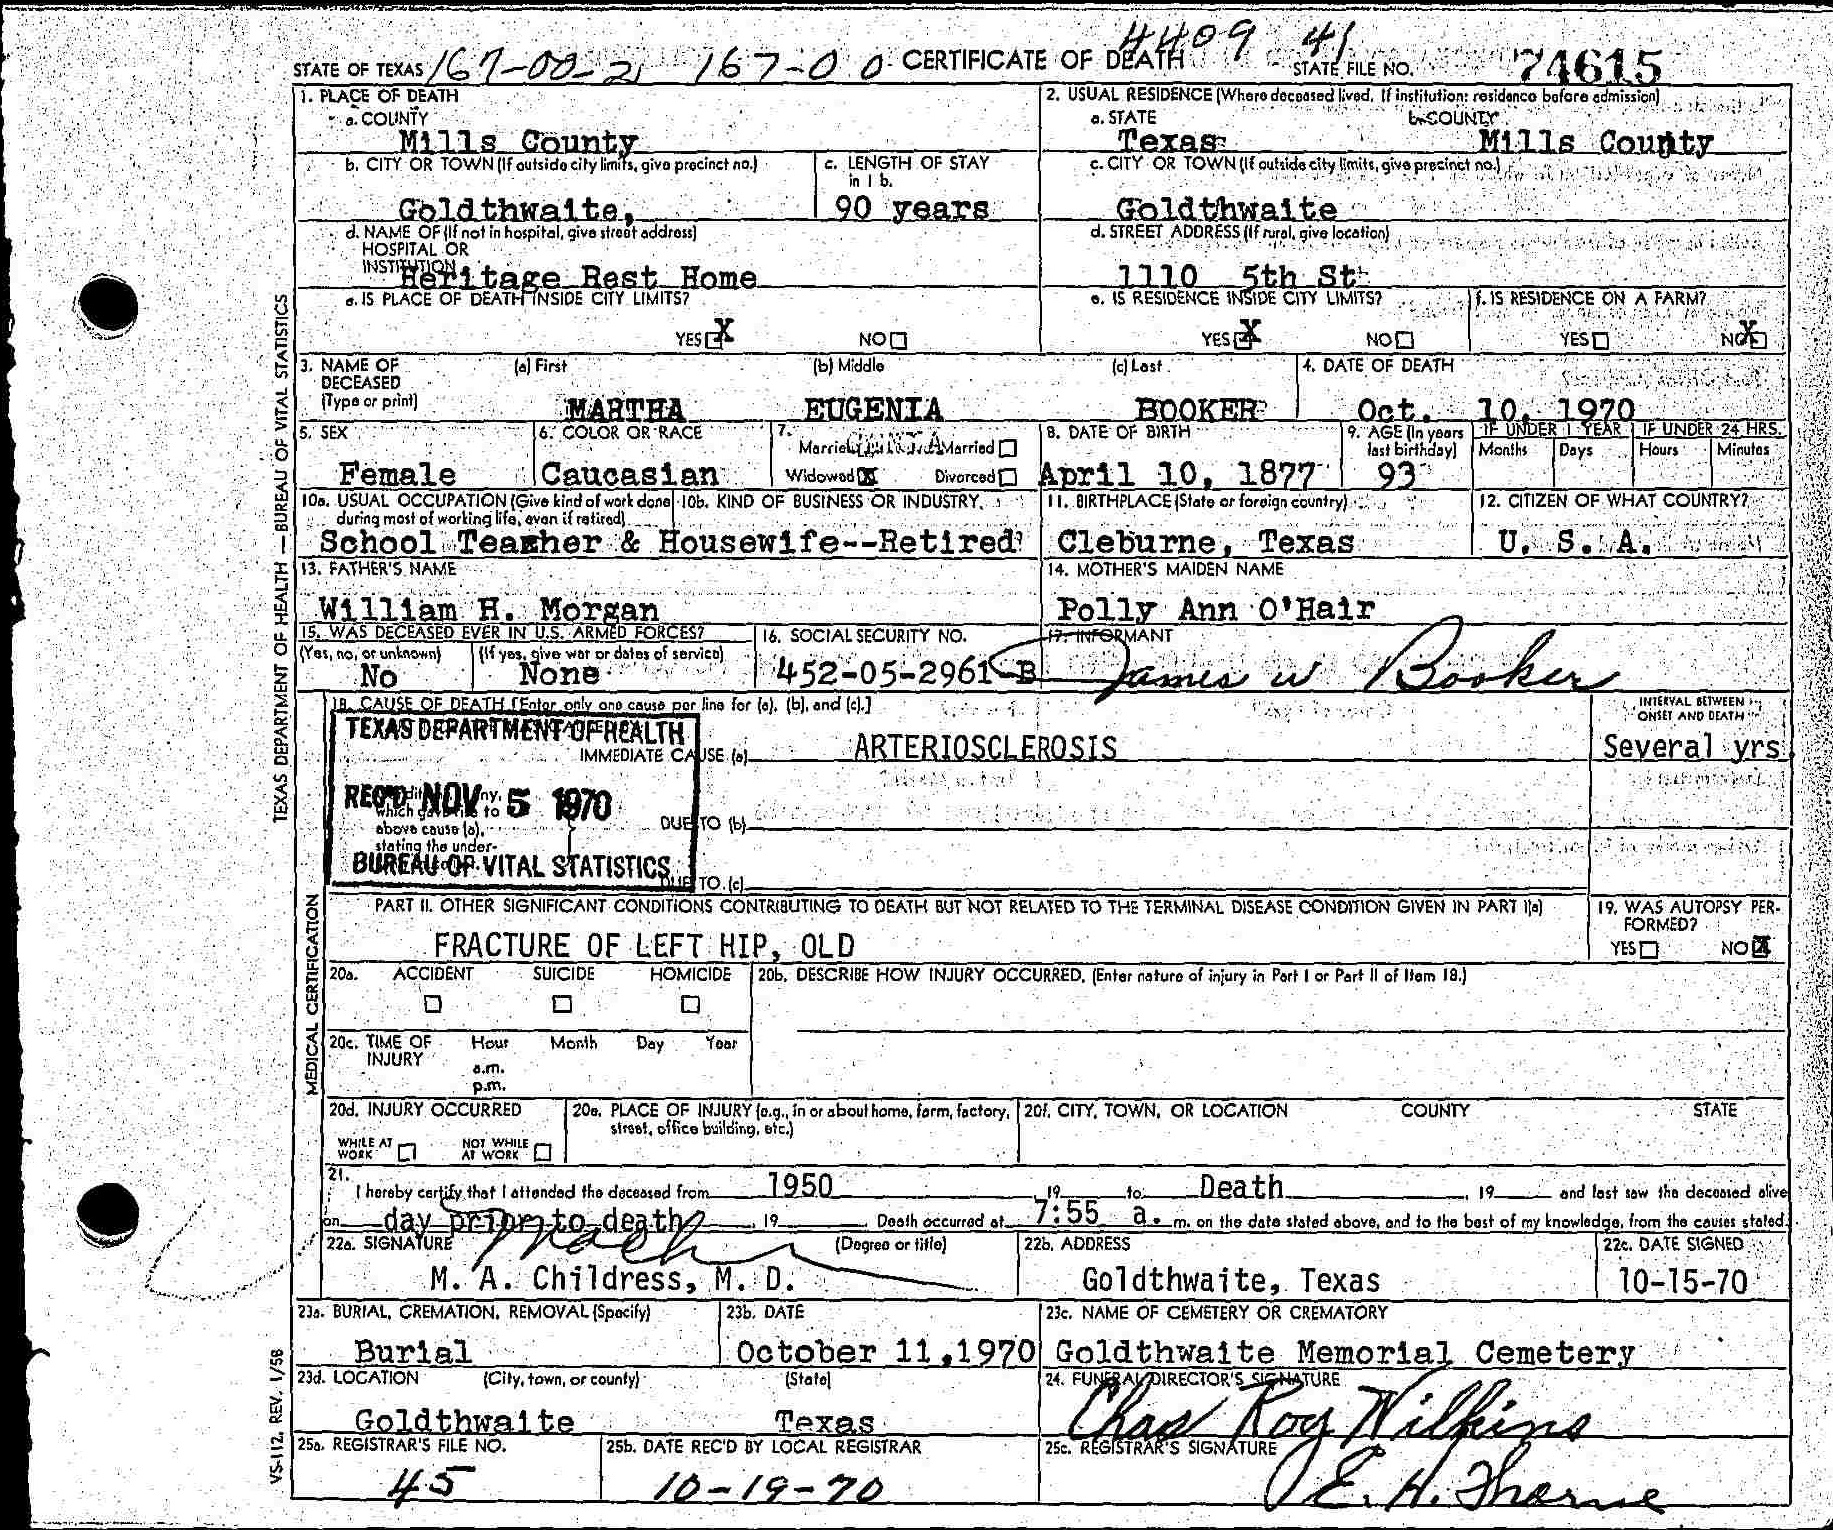 4409 41
STATE OF TEXAS 167-00-2 167-00 CERTIFICATE OF DEATH STATE FILE NO. 74615
1. PLACE OF DEATH
a. COUNTY
Mills County
2. USUAL RESIDENCE (Where deceased lived. If institution: residence before admission)
a. STATE b. COUNTY
Texas Mills County
b. CITY OR TOWN (If outside city limits, give precinct no.)
Goldthwaite,
c. LENGTH OF STAY
in 1 b.
90 years
c. CITY OR TOWN (If outside city limits, give precinct no.)
Goldthwaite
d. NAME OF (If not in hospital, give street address)
HOSPITAL OR
INSTITUTION
Heritage Rest Home
d. STREET ADDRESS (If rural, give location)
1110 5th St
e. IS PLACE OF DEATH INSIDE CITY LIMITS?
YES X NO
e. IS RESIDENCE INSIDE CITY LIMITS?
YES X NO
f. IS RESIDENCE ON A FARM?
YES NO X
3. NAME OF
DECEASED
(Type or print)
(a) First (b) Middle (c) Last
MARTHA EUGENIA BOOKER
4. DATE OF DEATH
Oct. 10, 1970
5. SEX
Female
6. COLOR OR RACE
Caucasian
7.
Married Married
Widowed X Divorced
8. DATE OF BIRTH
April 10, 1877
9. AGE (In years
last birthday)
93
IF UNDER 1 YEAR
Months Days
IF UNDER 24 HRS.
Hours Minutes
10a. USUAL OCCUPATION (Give kind of work done
during most of working life, even if retired)
10b. KIND OF BUSINESS OR INDUSTRY
School Teacher & Housewife--Retired
11. BIRTHPLACE (State or foreign country)
Cleburne, Texas
12. CITIZEN OF WHAT COUNTRY?
U. S. A.
13. FATHER'S NAME
William H. Morgan
14. MOTHER'S MAIDEN NAME
Polly Ann O'Hair
15. WAS DECEASED EVER IN U.S. ARMED FORCES?
(Yes, no, or unknown) (If yes, give war or dates of service)
No None
16. SOCIAL SECURITY NO.
452-05-2961-B
17. INFORMANT
James W Booker
18. CAUSE OF DEATH [Enter only one cause per line for (a), (b), and (c).]
INTERVAL BETWEEN
ONSET AND DEATH
TEXAS DEPARTMENT OF HEALTH
REC'D NOV 5 1970
BUREAU OF VITAL STATISTICS
IMMEDIATE CAUSE (a) ARTERIOSCLEROSIS Several yrs
which gave rise to
above cause (a),
stating the under-
DUE TO (b)
DUE TO (c)
PART II. OTHER SIGNIFICANT CONDITIONS CONTRIBUTING TO DEATH BUT NOT RELATED TO THE TERMINAL DISEASE CONDITION GIVEN IN PART I(a)
FRACTURE OF LEFT HIP, OLD
19. WAS AUTOPSY PER-
FORMED?
YES NO X
20a. ACCIDENT SUICIDE HOMICIDE
20b. DESCRIBE HOW INJURY OCCURRED. (Enter nature of injury in Part I or Part II of Item 18.)
20c. TIME OF
INJURY
Hour Month Day Year
a.m.
p.m.
20d. INJURY OCCURRED
WHILE AT
WORK
NOT WHILE
AT WORK
20e. PLACE OF INJURY (e.g., in or about home, farm, factory,
street, office building, etc.)
20f. CITY, TOWN, OR LOCATION COUNTY STATE
21.
I hereby certify that I attended the deceased from 1950, 19 to Death, 19 and last saw the deceased alive
on day prior to death, 19 Death occurred at 7:55 a. m. on the date stated above, and to the best of my knowledge, from the causes stated.
22a. SIGNATURE (Degree or title)
M. A. Childress, M. D.
22b. ADDRESS
Goldthwaite, Texas
22c. DATE SIGNED
10-15-70
23a. BURIAL, CREMATION, REMOVAL (Specify)
Burial
23b. DATE
October 11,1970
23c. NAME OF CEMETERY OR CREMATORY
Goldthwaite Memorial Cemetery
23d. LOCATION (City, town, or county) (State)
Goldthwaite Texas
24. FUNERAL DIRECTOR'S SIGNATURE
Chas Roy Wilkins
25a. REGISTRAR'S FILE NO.
45
25b. DATE REC'D BY LOCAL REGISTRAR
10-19-70
25c. REGISTRAR'S SIGNATURE
E. H. Thorne
TEXAS DEPARTMENT OF HEALTH — BUREAU OF VITAL STATISTICS
MEDICAL CERTIFICATION
VS-112, REV. 1/58